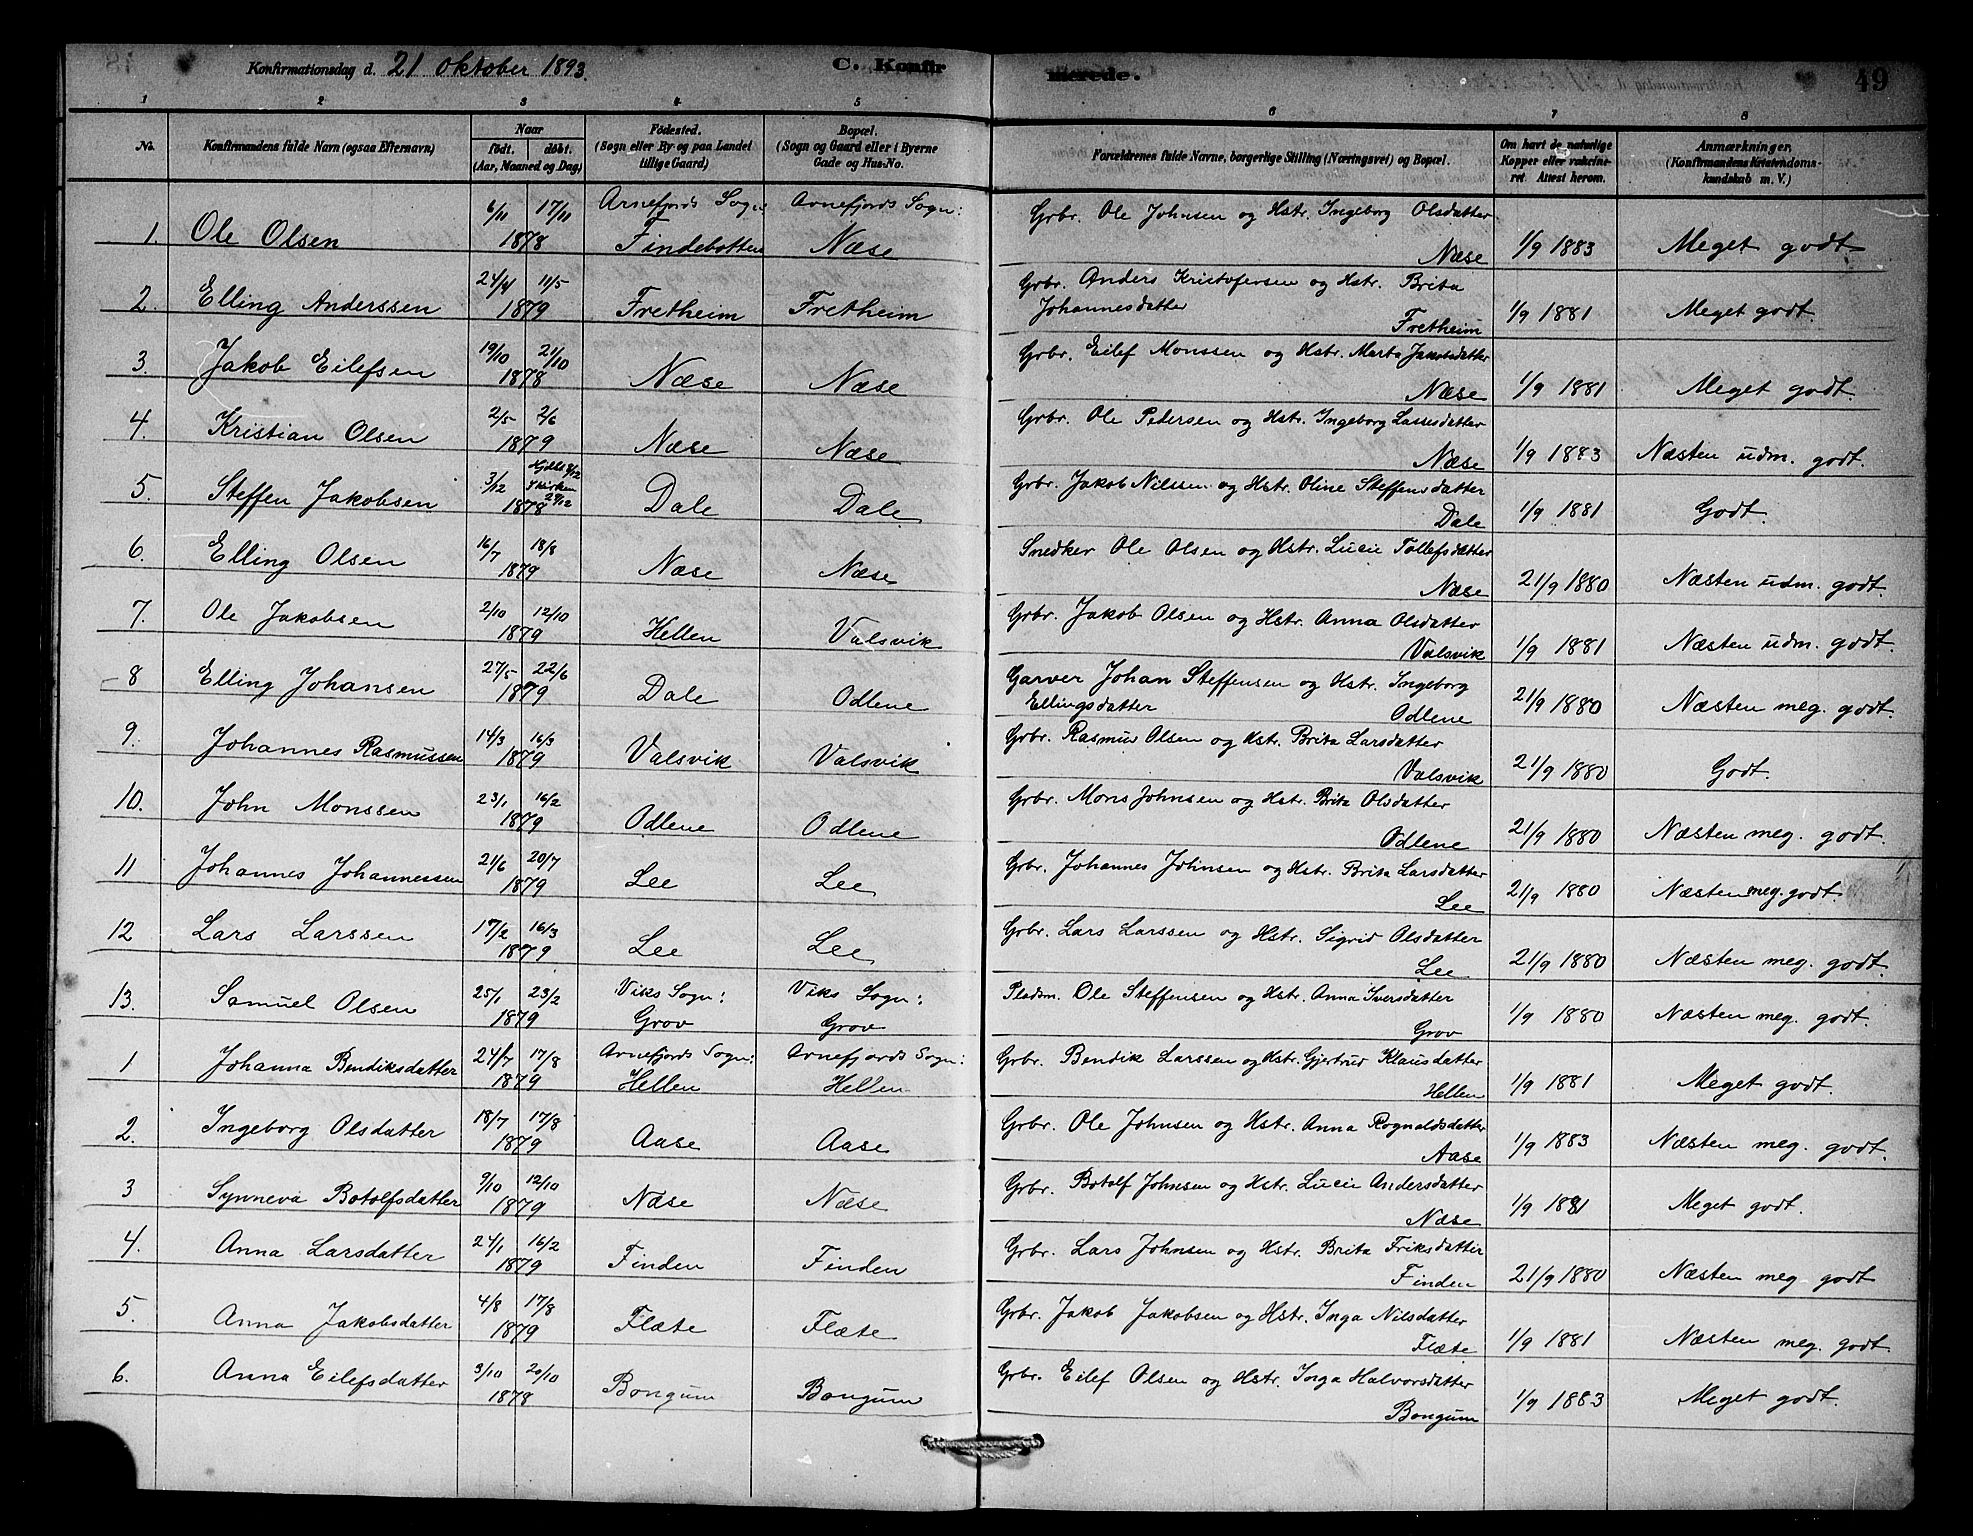 Konfirmationsdag d. 21 Oktober 1893. C. Konfirmerede. 49
1 2 3 4 5 6 7 8
No. Konfirmandens fulde Navn (ogsaa Efternavn). Naar født. døbt. (Aar, Maaned og Dag.) Fødested. (Sogn eller By og paa Landet tillige Gaard) Bopæl. (Sogn og Gaard eller i Byerne Gade og Hus-No. Forældrenes fulde Navne, borgerlige Stilling (Næringsvei) og Bopæl. Om havt de naturlige Kopper eller vakcineret. Attest herom. Anmærkninger. (Konfirmandens Kristendomskundskab m. V.)
1. Ole Olsen 6/11 17/11 1878 Arnefjords Sogn Findebotten Arnefjords Sogn: Næse Grbr. Ole Johnsen og Hstr. Ingeborg Olsdatter Næse 1/9 1883 Meget godt.
2. Elling Anderssen 24/4 11/5 1879 Fretheim Fretheim Grbr. Anders Kristofersen og Hstr. Brita Johannesdatter Fretheim 1/9 1881 Meget godt.
3. Jakob Eilefsen 19/10 21/10 1878 Næse Næse Grbr. Eilef Monssen og Hstr. Marta Jakobsdatter Næse 1/9 1881 Meget godt.
4. Kristian Olsen 2/5 2/6 1879 Næse Næse Grbr. Ole Pedersen og Hstr. Ingeborg Lassesdatter Næse 1/9 1883 Næsten udm. godt.
5. Steffen Jakobsen 3/12 Hjdbt 8/12 i kirken 29/12 1878 Dale Dale Grbr. Jakob Nilssen og Hstr. Oline Steffensdatter Dale 1/9 1881 Godt.
6. Elling Olsen 16/7 18/8 1879 Næse Næse Snedker Ole Olsen og Hstr. Lucie Tollefsdatter Næse 21/9 1880 Næsten udm. godt.
7. Ole Jakobsen 2/10 12/10 1879 Hellen Valsvik Grbr. Jakob Olsen og Hstr. Anna Olsdatter Valsvik 1/9 1881 Næsten udm. godt.
8 Elling Johansen 27/5 22/6 1879 Dale Odlene Garver Johan Steffensen og Hstr. Ingeborg Ellingsdatter Odlene 21/9 1880 Næsten meg. godt.
9. Johannes Rasmussen 14/3 16/3 1879 Valsvik Valsvik Grbr. Rasmus Olsen og Hstr. Brita Larsdatter Valsvik 21/9 1880 Godt.
10. John Monssen 23/1 16/2 1879 Odlene Odlene Grbr. Mons Johnsen og Hstr. Brita Olsdatter Odlene 21/9 1880 Næsten meg. godt
11 Johannes Johannessen 21/6 20/7 1879 Lee Lee Grbr. Johannes Johnsen og Hstr. Brita Larsdatter Lee 21/9 1880 Næsten meg. godt.
12 Lars Larssen 17/2 16/3 1879 Lee Lee Grbr. Lars Larssen og Hstr. Sigrid Olsdatter Lee 21/9 1880 Næsten meg. godt.
13. Samuel Olsen 25/1 23/2 1879 Viks Sogn: Grov Viks Sogn: Grov Pladsm. Ole Steffensen og Hstr. Anna Iversdatter Grov 1/9 1880 Næsten meg. godt.
1 Johanna Bendiksdatter 24/7 17/8 1879 Arnefjords Sogn: Hellen Arnefjords Sogn: Hellen Grbr. Bendik Larssen og Hstr. Gjertrud Klausdatter Hellen 1/9 1881 Meget godt.
2. Ingeborg Olsdatter 18/7 17/8 1879 Aase Aase Grbr. Ole Johnsen og Hstr. Anna Rognaldsdatter Aase 1/9 1883 Næsten meg. godt.
3 Synneva Botolfsdatter 9/10 12/10 1879 Næse Næse Grbr. Botolf Johnsen og Hstr. Lucie Andersdatter Næse 1/9 1881 Meget godt.
4. Anna Larsdatter 24/1 16/2 1879 Finden Finden Grbr. Lars Johnsen og Hstr. Brita Eriksdatter Finden 21/9 1880 Næsten meg. godt
5. Anna Jakobsdatter 4/8 17/8 1879 Flæte Flæte Grbr. Jakob Jakobsen og Hstr. Inga Nilsdatter Flæte 1/9 1881 Næsten meg. godt.
6. Anna Eilefsdatter 3/10 20/10 1878 Bongum Bongum Grbr. Eilef Olsen og Hstr. Inga Halvorsdatter Bongum 1/9 1883 Meget godt.